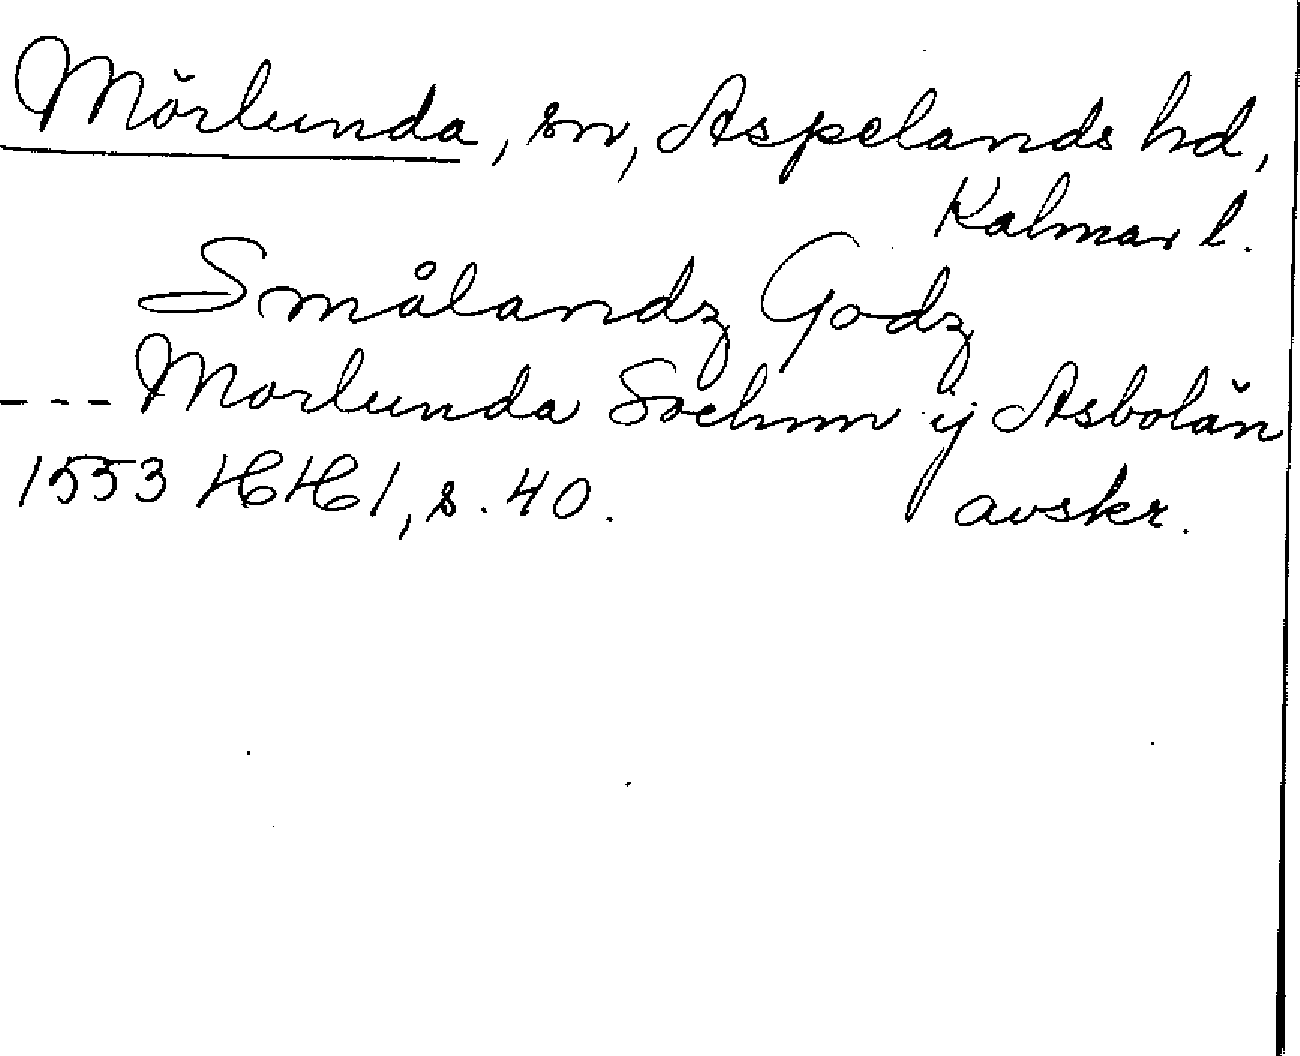 Mörlunda, sn, Aspelands hd,
Kalmar l.
Smålandz Godz
--- Morlunda Sochnn ij Asbolän
1553 HH 1, s. 40. avskr.